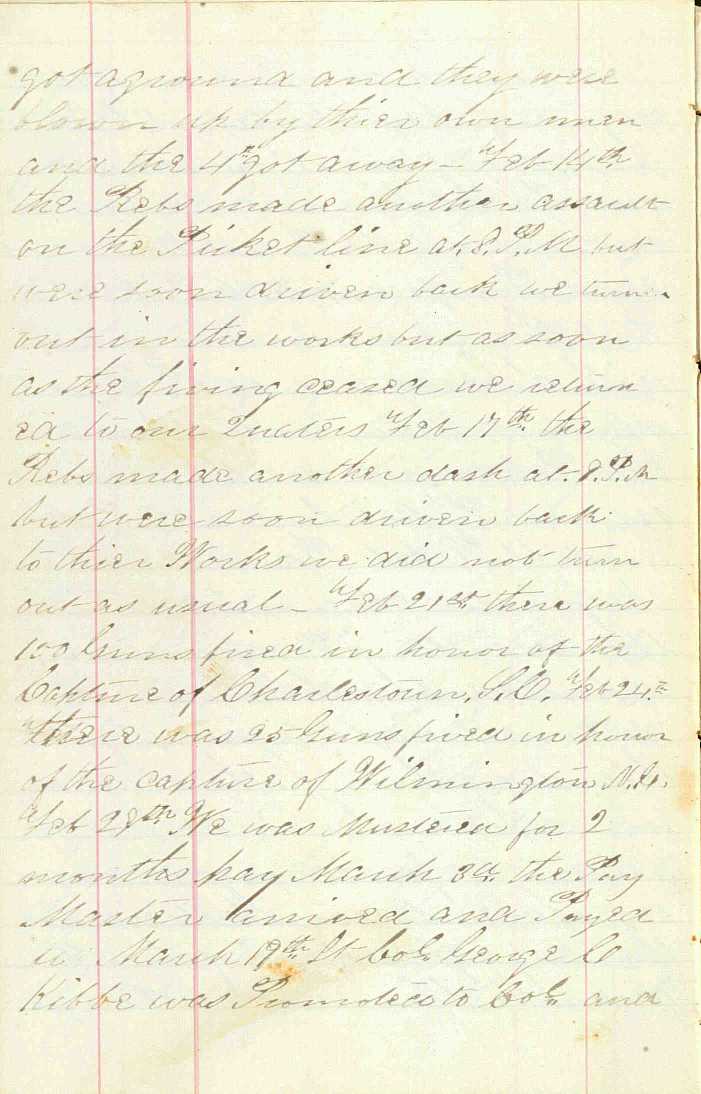 got aground and they were
blown up by thier own men
and the 4th got away – Feb 14th
the Rebs made another assault
on the Picket line at 8. P. M but
were soon driven back we turn
out in the works but as soon
as the firing ceased we return
ed to our Quaters Feb 17th the
Rebs made another dash at. 8. P. M
but were soon driven back
to thier Works we did not turn
out as usual – Feb 21st there was
100 Guns fired in honor of the
Capture of Charlestown, S.C. Feb 24th
there was 25 Guns fired in honor
of the capture of Wilmington N.C.
Feb 28th We was Mustered for 2
months pay March 3d the Pay
Master arrived and Payed
March 19th Lt Col. George C
Kibbe was Promoted to Col. and